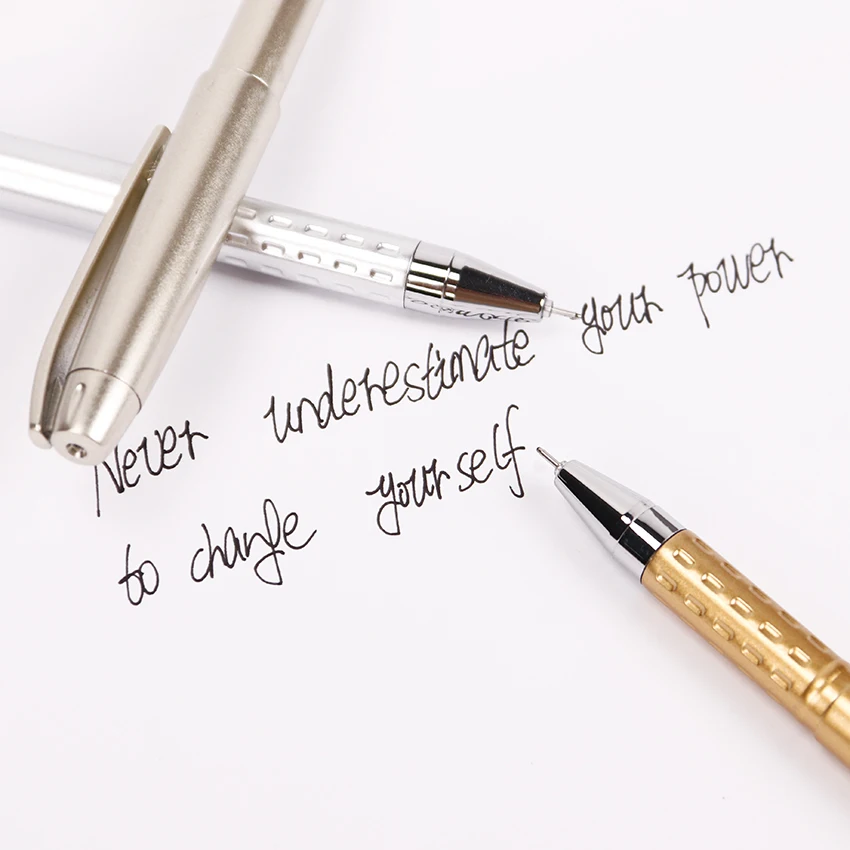 Never underestimate your power
to change yourself